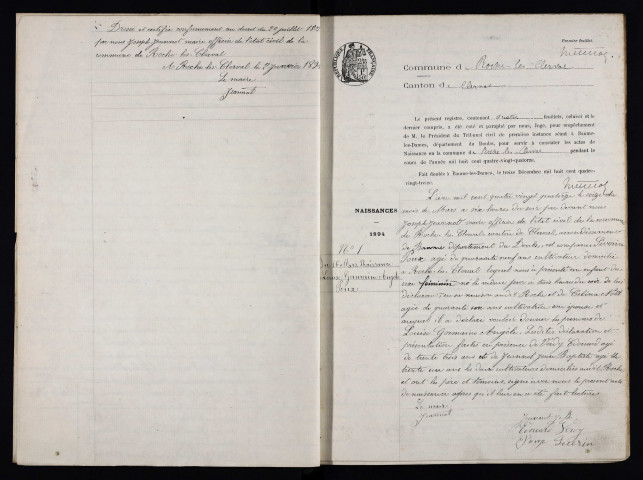 Dressé et certifié conformément au décret du 20 juillet 18
par nous Joseph Jeannot maire officier de l'état civil de la
commune de Roche les Clerval
A Roche les Clerval le janvier 189
Le maire
Jeannot
Premier feuillet.
Commune d Roche-les-Clerval
Canton d Clerval
Le présent registre, contenant quatre feuillets, celui-ci et le
dernier compris, a été coté et paraphé par nous, Juge, pour empêchement
de M. le Président du Tribunal civil de première instance séant à Baume-
les-Dames, département du Doubs, pour servir à constater les actes de
Naissance en la commune de Roche les Clerval pendant le
cours de l'année mil huit cent quatre-vingt-quatorze.
Fait double à Baume-les-Dames, le treize Décembre mil huit cent quatre-
vingt-treize.
NAISSANCES
1894
N° 1
Du 16 Mars Naissance
Louise Germaine Angèle
L'an mil huit cent quatre vingt quatorze le seize du
mois de Mars à six heures du soir par devant nous
Joseph Jeannot maire officier de l'état civil de la commune
de Roche les Clerval canton de Clerval arrondissement
de Baume département du Doubs, est comparu
agé de quarante ans cultivateur domicilié
à Roche les Clerval lequel nous a présenté un enfant du
sexe féminin né le même jour à trois heures du soir de lui
déclarant en sa maison audit Roche et de
agée de quarante ans cultivatrice son épouse et
auquel il a déclaré vouloir donner les prénoms de
Louise Germaine Angèle. Lesdites déclaration et
présentation faites en présence de Edouard agé
de trente trois ans et de Jeannot Jean Baptiste agé de
trente ans les deux cultivateurs domiciliés audit Roche
et ont les père et témoins, signé avec nous le présent acte
de naissance après qu'il leur en a été fait lecture
Le maire
Jeannot
Jeannot J. B.
Edouard